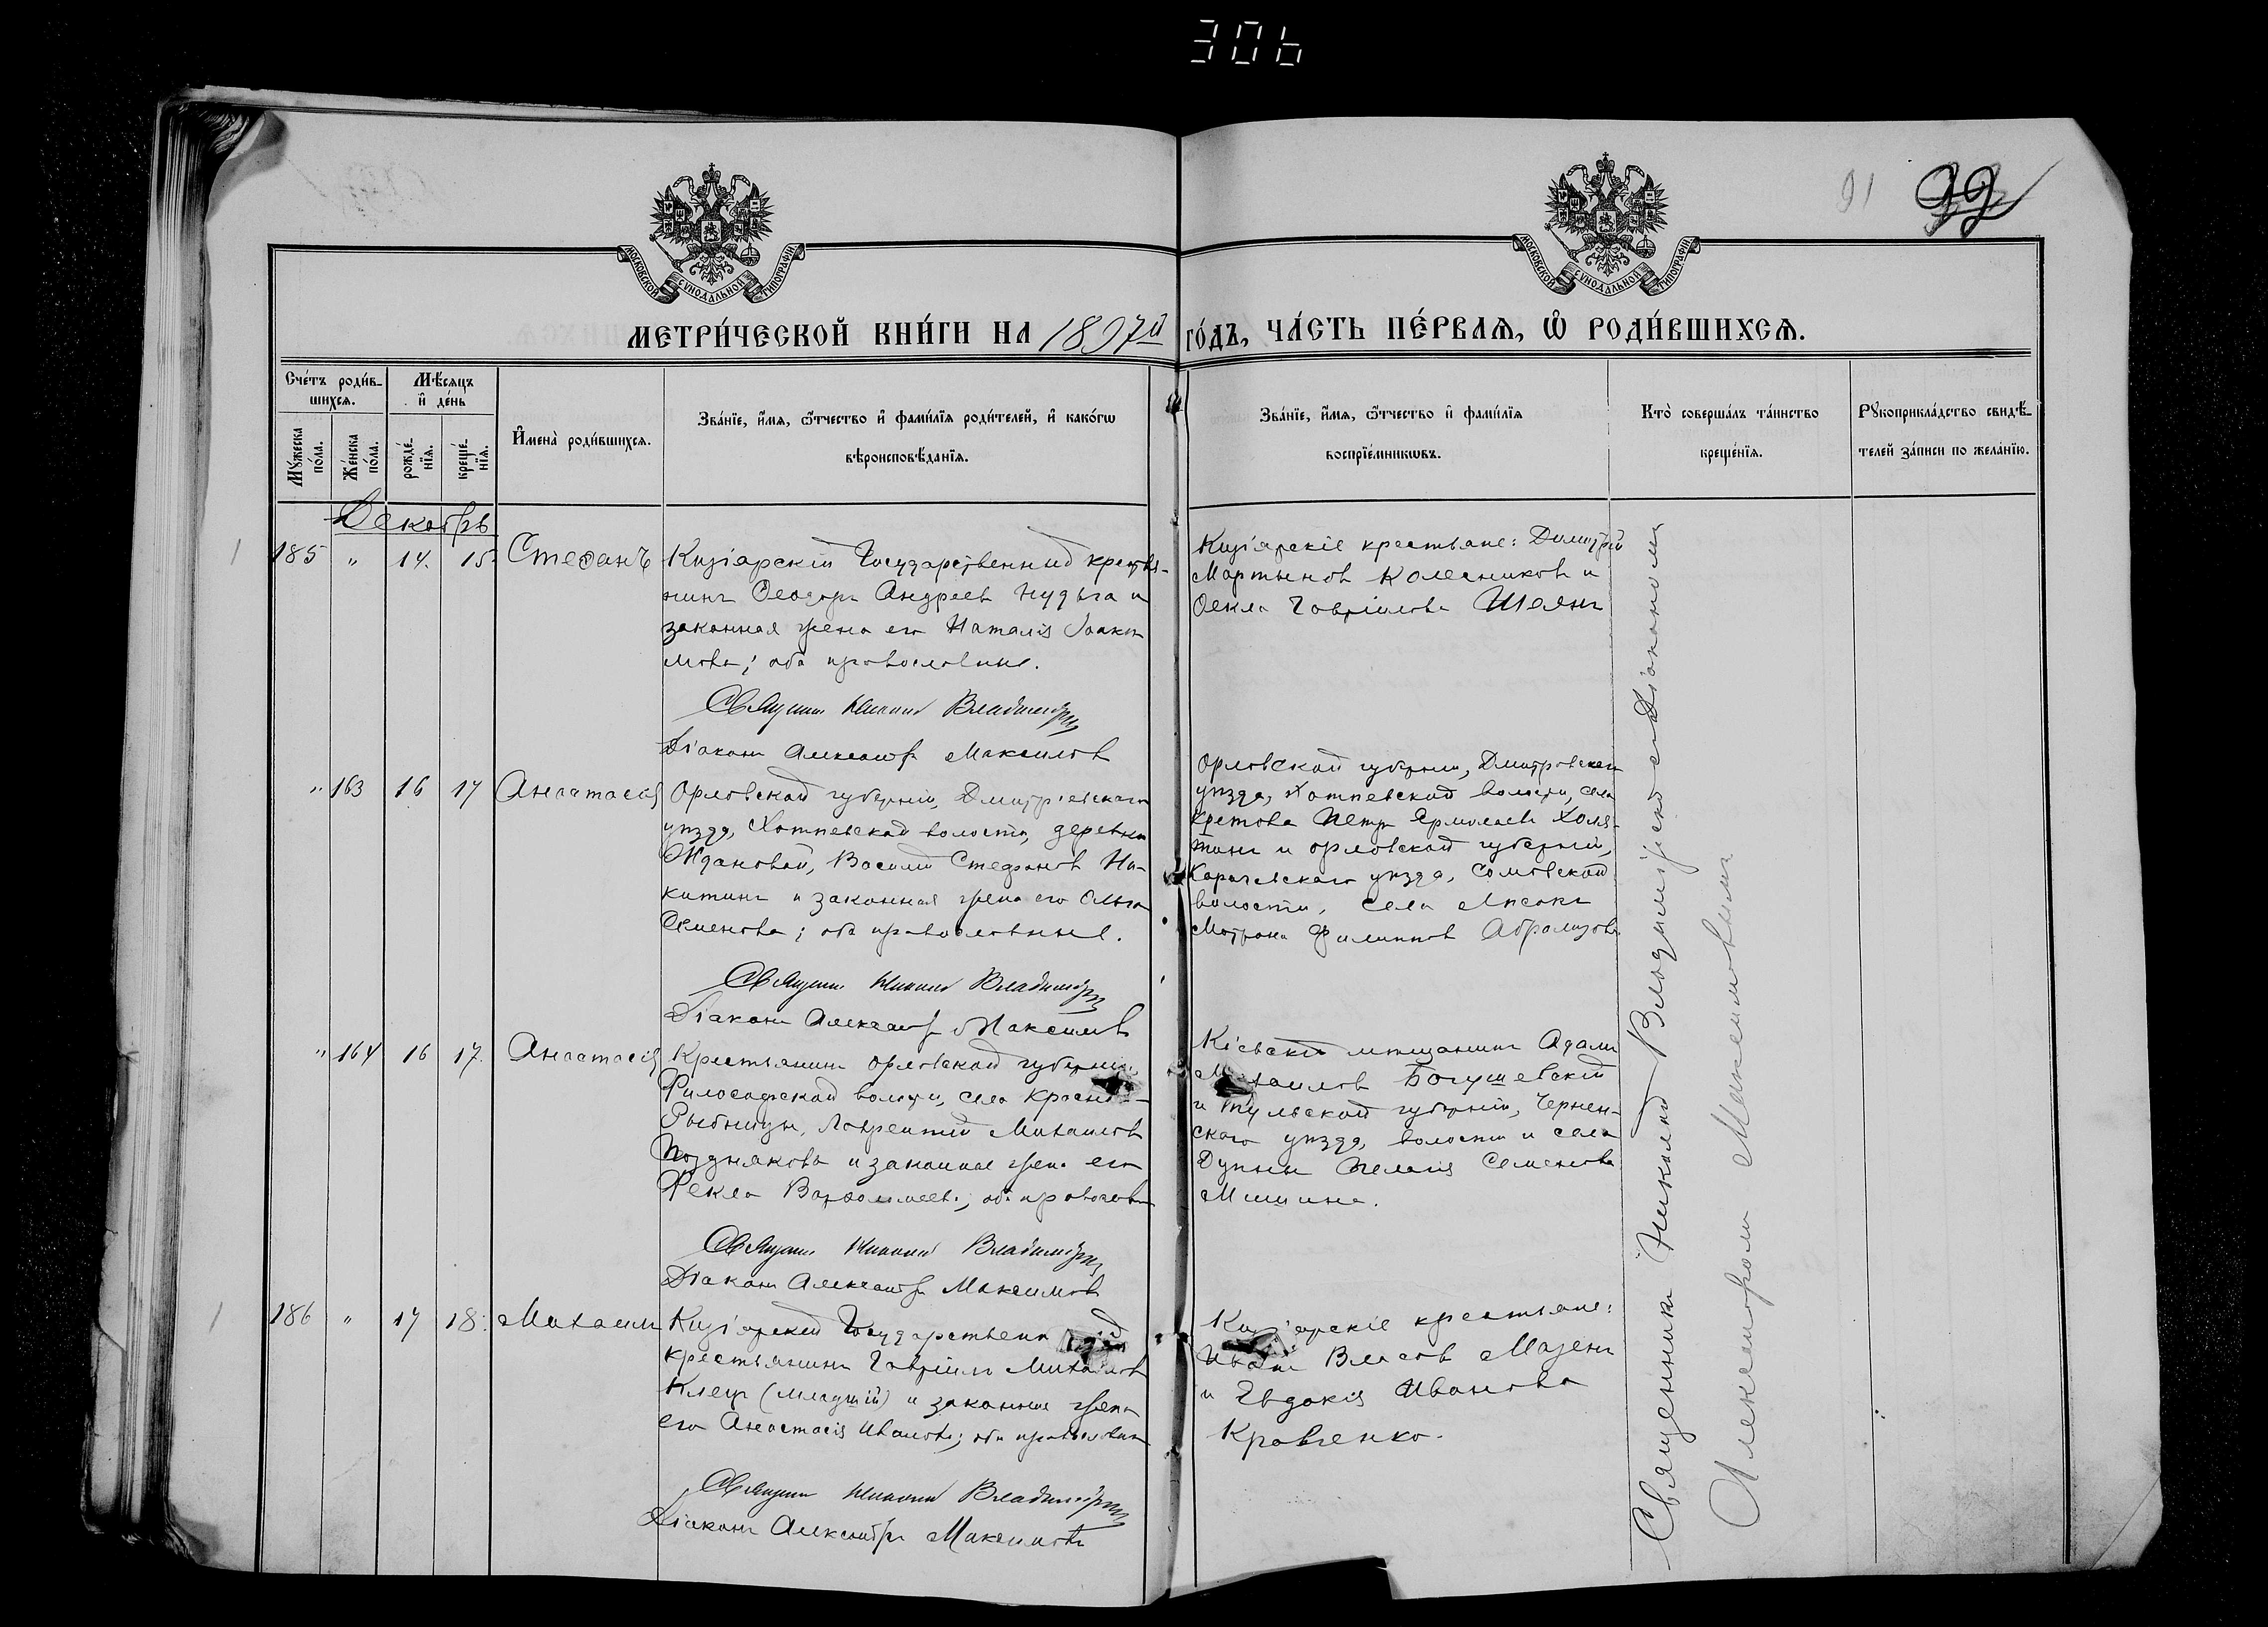 306
91 92
МОСКОВСКОЙ СѴНОДАЛЬНОЙ ТИПОГРАФІИ
МОСКОВСКОЙ СѴНОДАЛЬНОЙ ТИПОГРАФІИ
МЕТРИ́ЧЕСКОЙ КНИ́ГИ НА 1897й ГО́ДЪ, ЧА́СТЬ ПЕ́РВАѦ, Ѡ҆ РОДИ́ВШИХСѦ.
Сче́тъ роди́вшихсѧ.
Мꙋ́жеска по́ла.
Же́нска по́ла.
Мѣ́сѧцъ и҆ де́нь
рожде́нїѧ.
креще́нїѧ.
И҆мена̀ роди́вшихсѧ.
Зва́нїе, и҆́мѧ, ѻ҆́тчество и҆ фами́лїѧ роди́телей, и҆ како́гѡ вѣроисповѣ́данїѧ.
Зва́нїе, и҆́мѧ, ѻ҆́тчество и҆ фами́лїѧ воспрїе́мникѡвъ.
Кто̀ соверша́лъ та́инство креще́нїѧ.
Рꙋкоприкла́дство свидѣ́телей за́писи по жела́нїю.
Декабрь
185 " 14. 15. Стефанъ
Кизіярскій Государственный крестья-
нинъ Ѳеодоръ Андреевъ Нудьга и
законная жена его Наталія Іоаки-
мова; оба православные.
Священникъ Николай Владимірскій
Діаконъ Александръ Максимовъ
Кизіярскіе крестьяне: Димитрій
Мартыновъ Колесниковъ и
Ѳекла Гавріилова Шеянъ
" 163 16 17 Анастасія
Орловской губерніи, Дмитріевскаго
уѣзда, Хотѣевской волости, деревни
Ждановой, Василій Стефановъ Ни-
китинъ и законная жена его Ольга
Семенова; оба православные.
Священникъ Николай Владимірскій
Діаконъ Александръ Максимовъ
Орловской губерніи, Дмитровскаго
уѣзда, Хотѣевской волости, села
Кретова Петръ Ермолаевъ
и Орловской губерніи,
Карачевскаго уѣзда,
волости, села
Матрона Филиппова
" 164 16 17. Анастасія
Крестьянинъ Орловской губерніи,
Философской волости, села Красной
Рыбницы, Лаврентій Михаиловъ
Поздняковъ и законная жена его
Ѳекла Варѳоломеева; оба православн
Священникъ Николай Владимірскій
Діаконъ Александръ Максимовъ
Кіевскій мѣщанинъ Адамъ
Михаиловъ Богушевскій
и Тульской губерніи, Чернен-
скаго уѣзда, волости и села
Дупны Пелагія Семенова
Мишина.
186 " 17 18. Михаилъ
Кизіярскій Государственный
крестьянинъ Гавріилъ Михаиловъ
Клецъ (младшій) и законная жена
его Анастасія Иванова; оба православн
Священникъ Николай Владимірскій
Діаконъ Александръ Максимовъ
Кизіярскіе крестьяне:
Власовъ Мазенъ
и Евдокія Иванова
Кравченко.
Священникъ Николай Владимірскій съ Діакономъ
Александромъ Максимовымъ